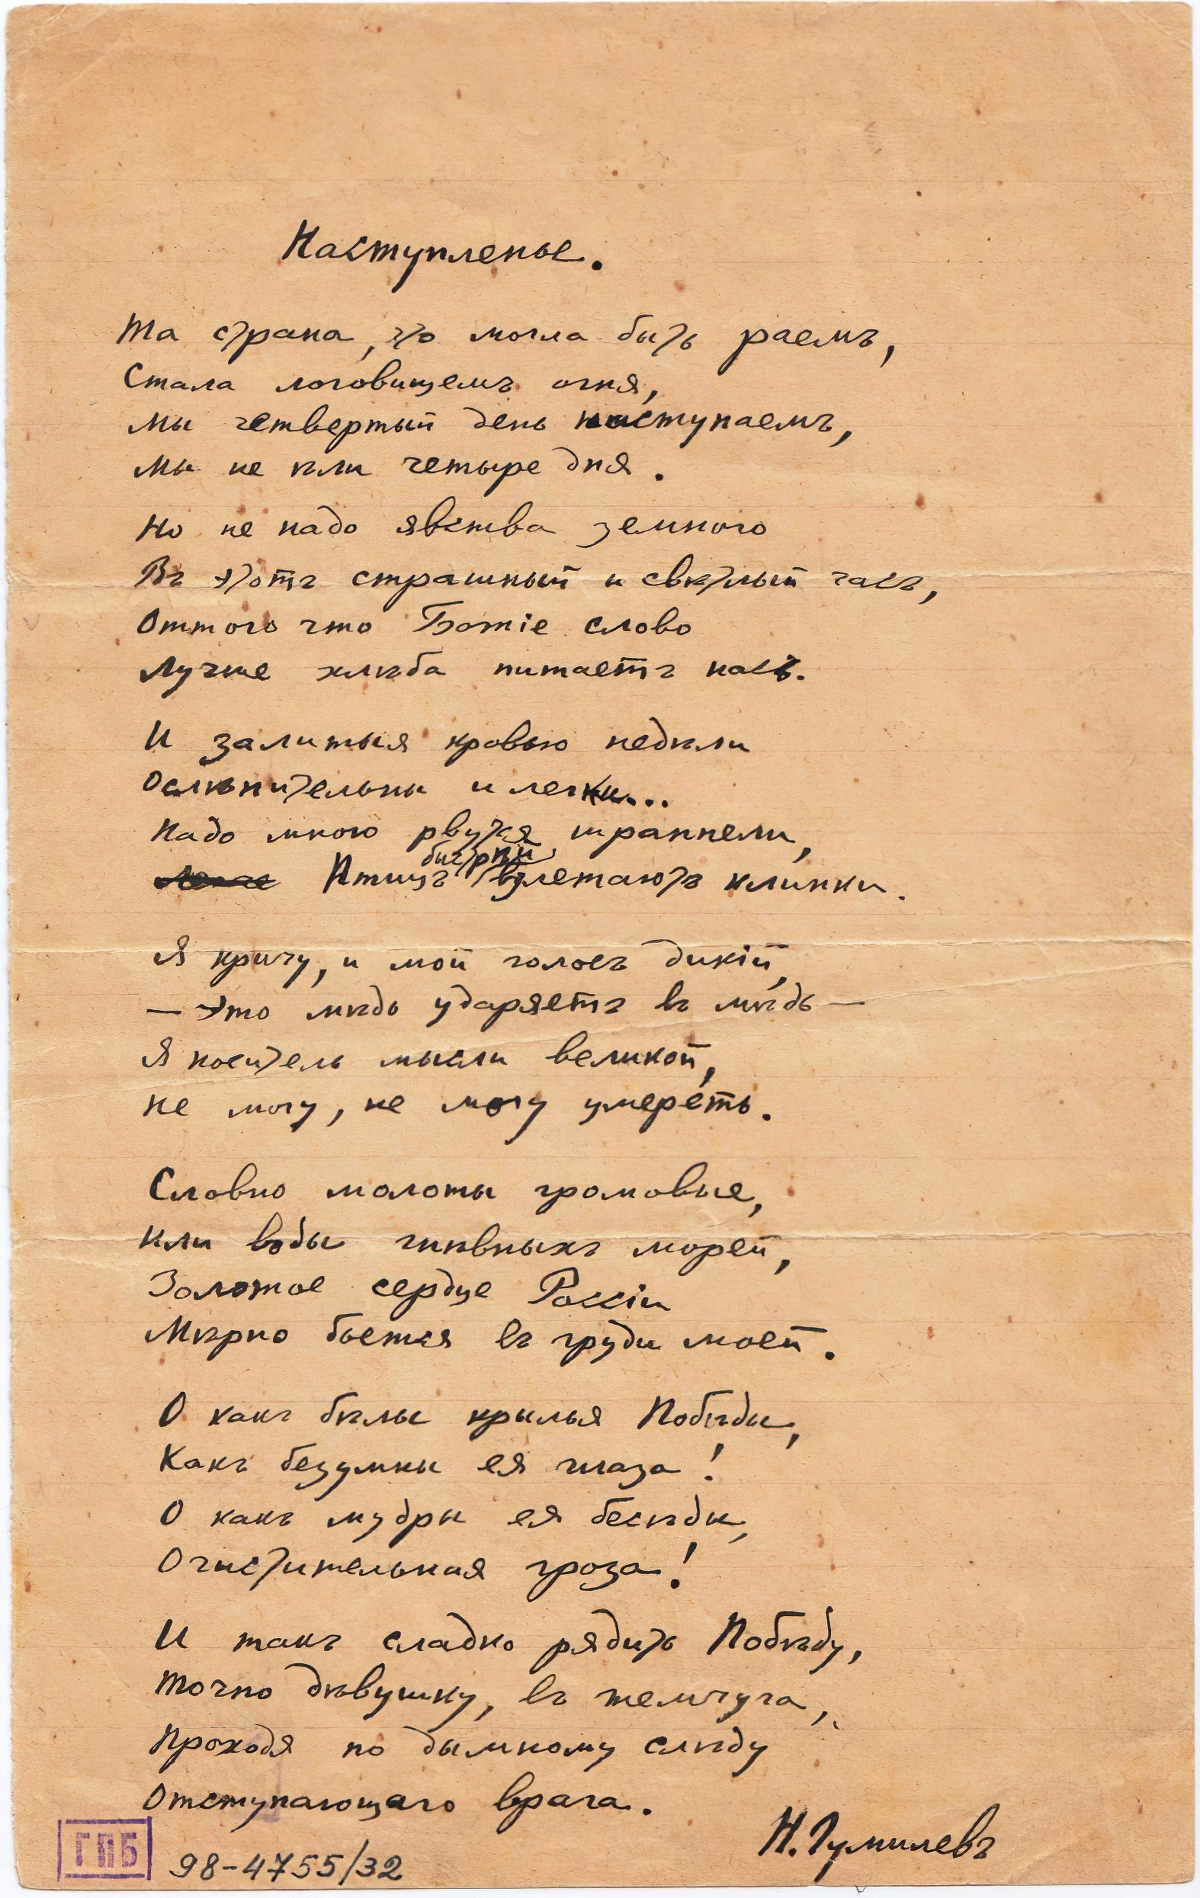 Наступленье.
Та страна, что могла быть раемъ,
Стала логовищемъ огня,
Мы четвертый день наступаемъ,
Мы не ѣли четыре дня.
Но не надо явства земного
Въ этотъ страшный и свѣтлый часъ,
Оттого что Божіе слово
Лучше хлѣба питаетъ насъ.
И залитыя кровью недѣли
Ослѣпительны и легки...
Надо мною рвутся шрапнели,
быстрѣй
Птицъ взлетаютъ клинки.
Я кричу, и мой голосъ дикій,
— Это мѣдь ударяетъ въ мѣдь —
Я носитель мысли великой,
Не могу, не могу умереть.
Словно молоты громовые,
Или воды гнѣвныхъ морей,
Золотое сердце Россіи
Мѣрно бьется въ груди моей.
О какъ бѣлы крылья Побѣды,
Какъ безумны ея глаза!
О какъ мудры ея бесѣды,
Очистительная гроза!
И такъ сладко рядить Побѣду,
Точно дѣвушку, въ жемчуга,
Проходя по дымному слѣду
Отступающаго врага.
Н. Гумилевъ
ГПБ
98-4755/32